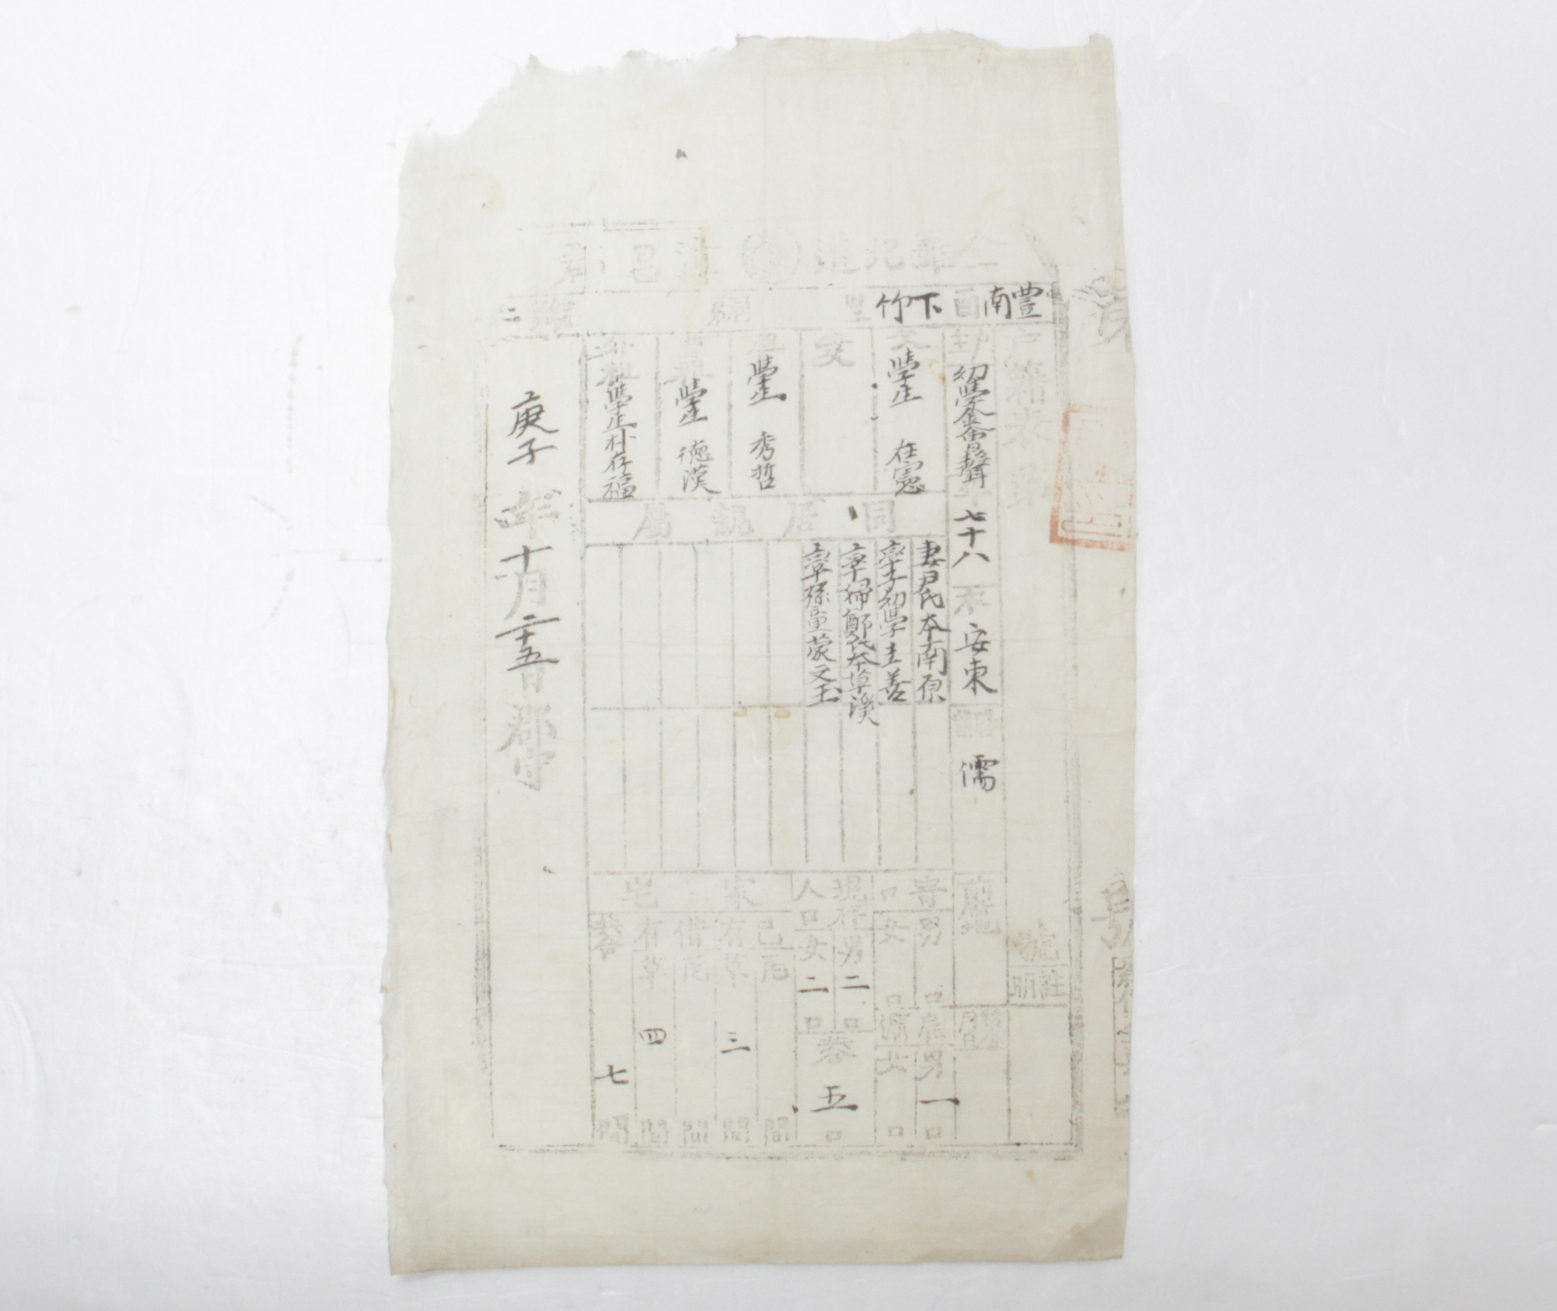 全羅北道淳昌郡
豐南面下竹里
戶籍表第
戶主幼學金昌聲
年七十八
本安東
職業儒
父學生在憲
祖學生秀哲
曾祖學生德漢
外祖學生朴存福
同居親屬
妻尹氏本南原
率子幼學圭善
率婦鄭氏本草溪
率孫童蒙文玉
前居地
號
註明
寄口男口
女口
雇傭男一口
女口
現存人口男二口
女二口
總五口
家宅
己瓦間
有草三間
借瓦間
有草四間
共合七間
庚子年十月二十五日郡守